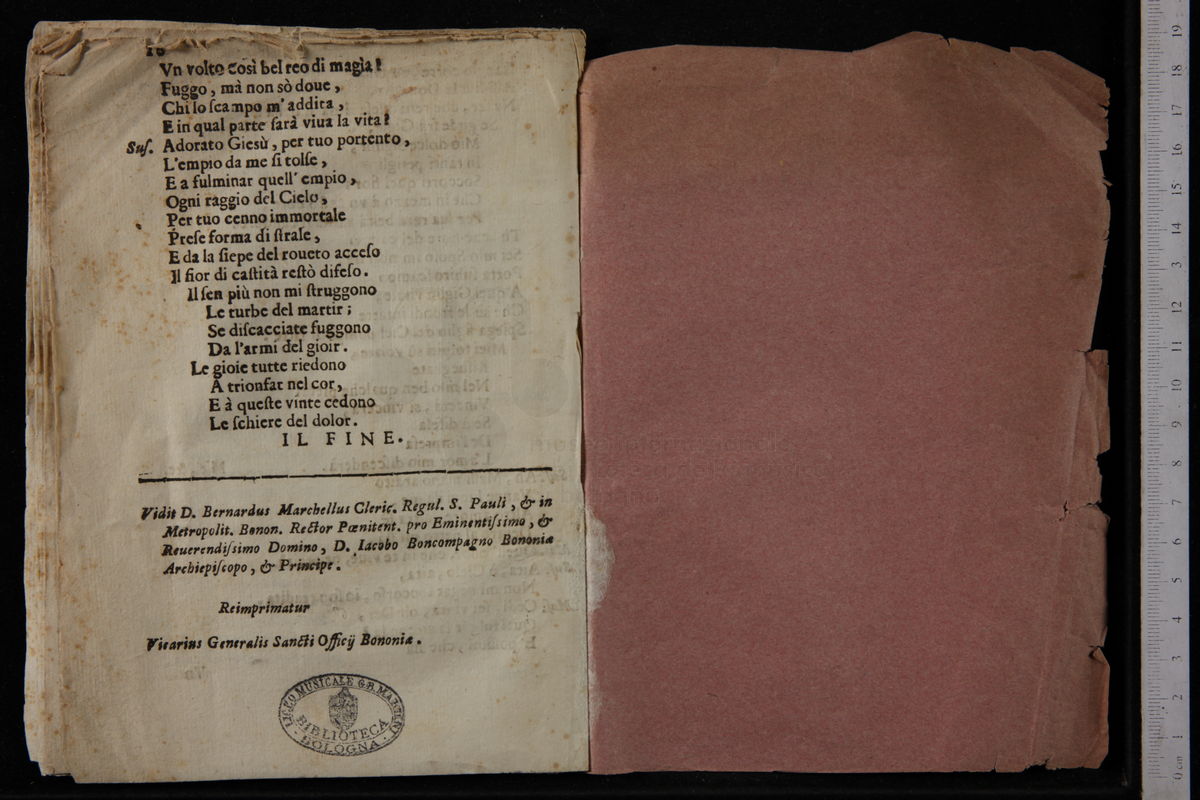 16
Vn volto così bel reo di magìa?
Fuggo, mà non sò doue,
Chi lo ſcampo m'addita,
E in qual parte ſarà viua la vita?
Suſ. Adorato Giesù, per tuo portento,
L'empio da me ſi tolſe,
E a fulminar quell'empio,
Ogni raggio del Cielo,
Per tuo cenno immortale
Preſe forma di ſtrale,
E da la ſiepe del roueto acceſo
Il fior di caſtità reſtò difeſo.
Il ſen più non mi ſtruggono
Le turbe del martir;
Se diſcacciate fuggono
Da l'armi del gioir.
Le gioie tutte riedono
A trionfar nel cor,
E à queſte vinte cedono
Le ſchiere del dolor.
IL FINE.
Vidit D. Bernardus Marchellus Cleric. Regul. S. Pauli, & in
Metropolit. Bonon. Rector Pœnitent. pro Eminentiſsimo, &
Reuerendiſsimo Domino, D. Iacobo Boncompagno Bononiæ
Archiepiſcopo, & Principe.
Reimprimatur
Vicarius Generalis Sancti Officij Bononiæ.
LICEO MUSICALE G.B. MARTINI
BIBLIOTECA
BOLOGNA